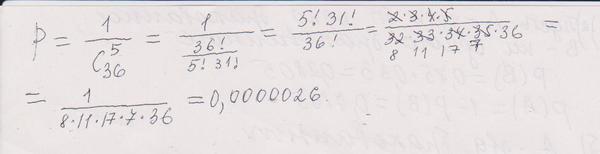 P = 1/C₃₆⁵ = 1/(36!/(5! 31!)) = 5! 31!/36! = 2·3·4·5/(32·33·34·35·36) =
8 11 17 7
= 1/(8·11·17·7·36) = 0,0000026